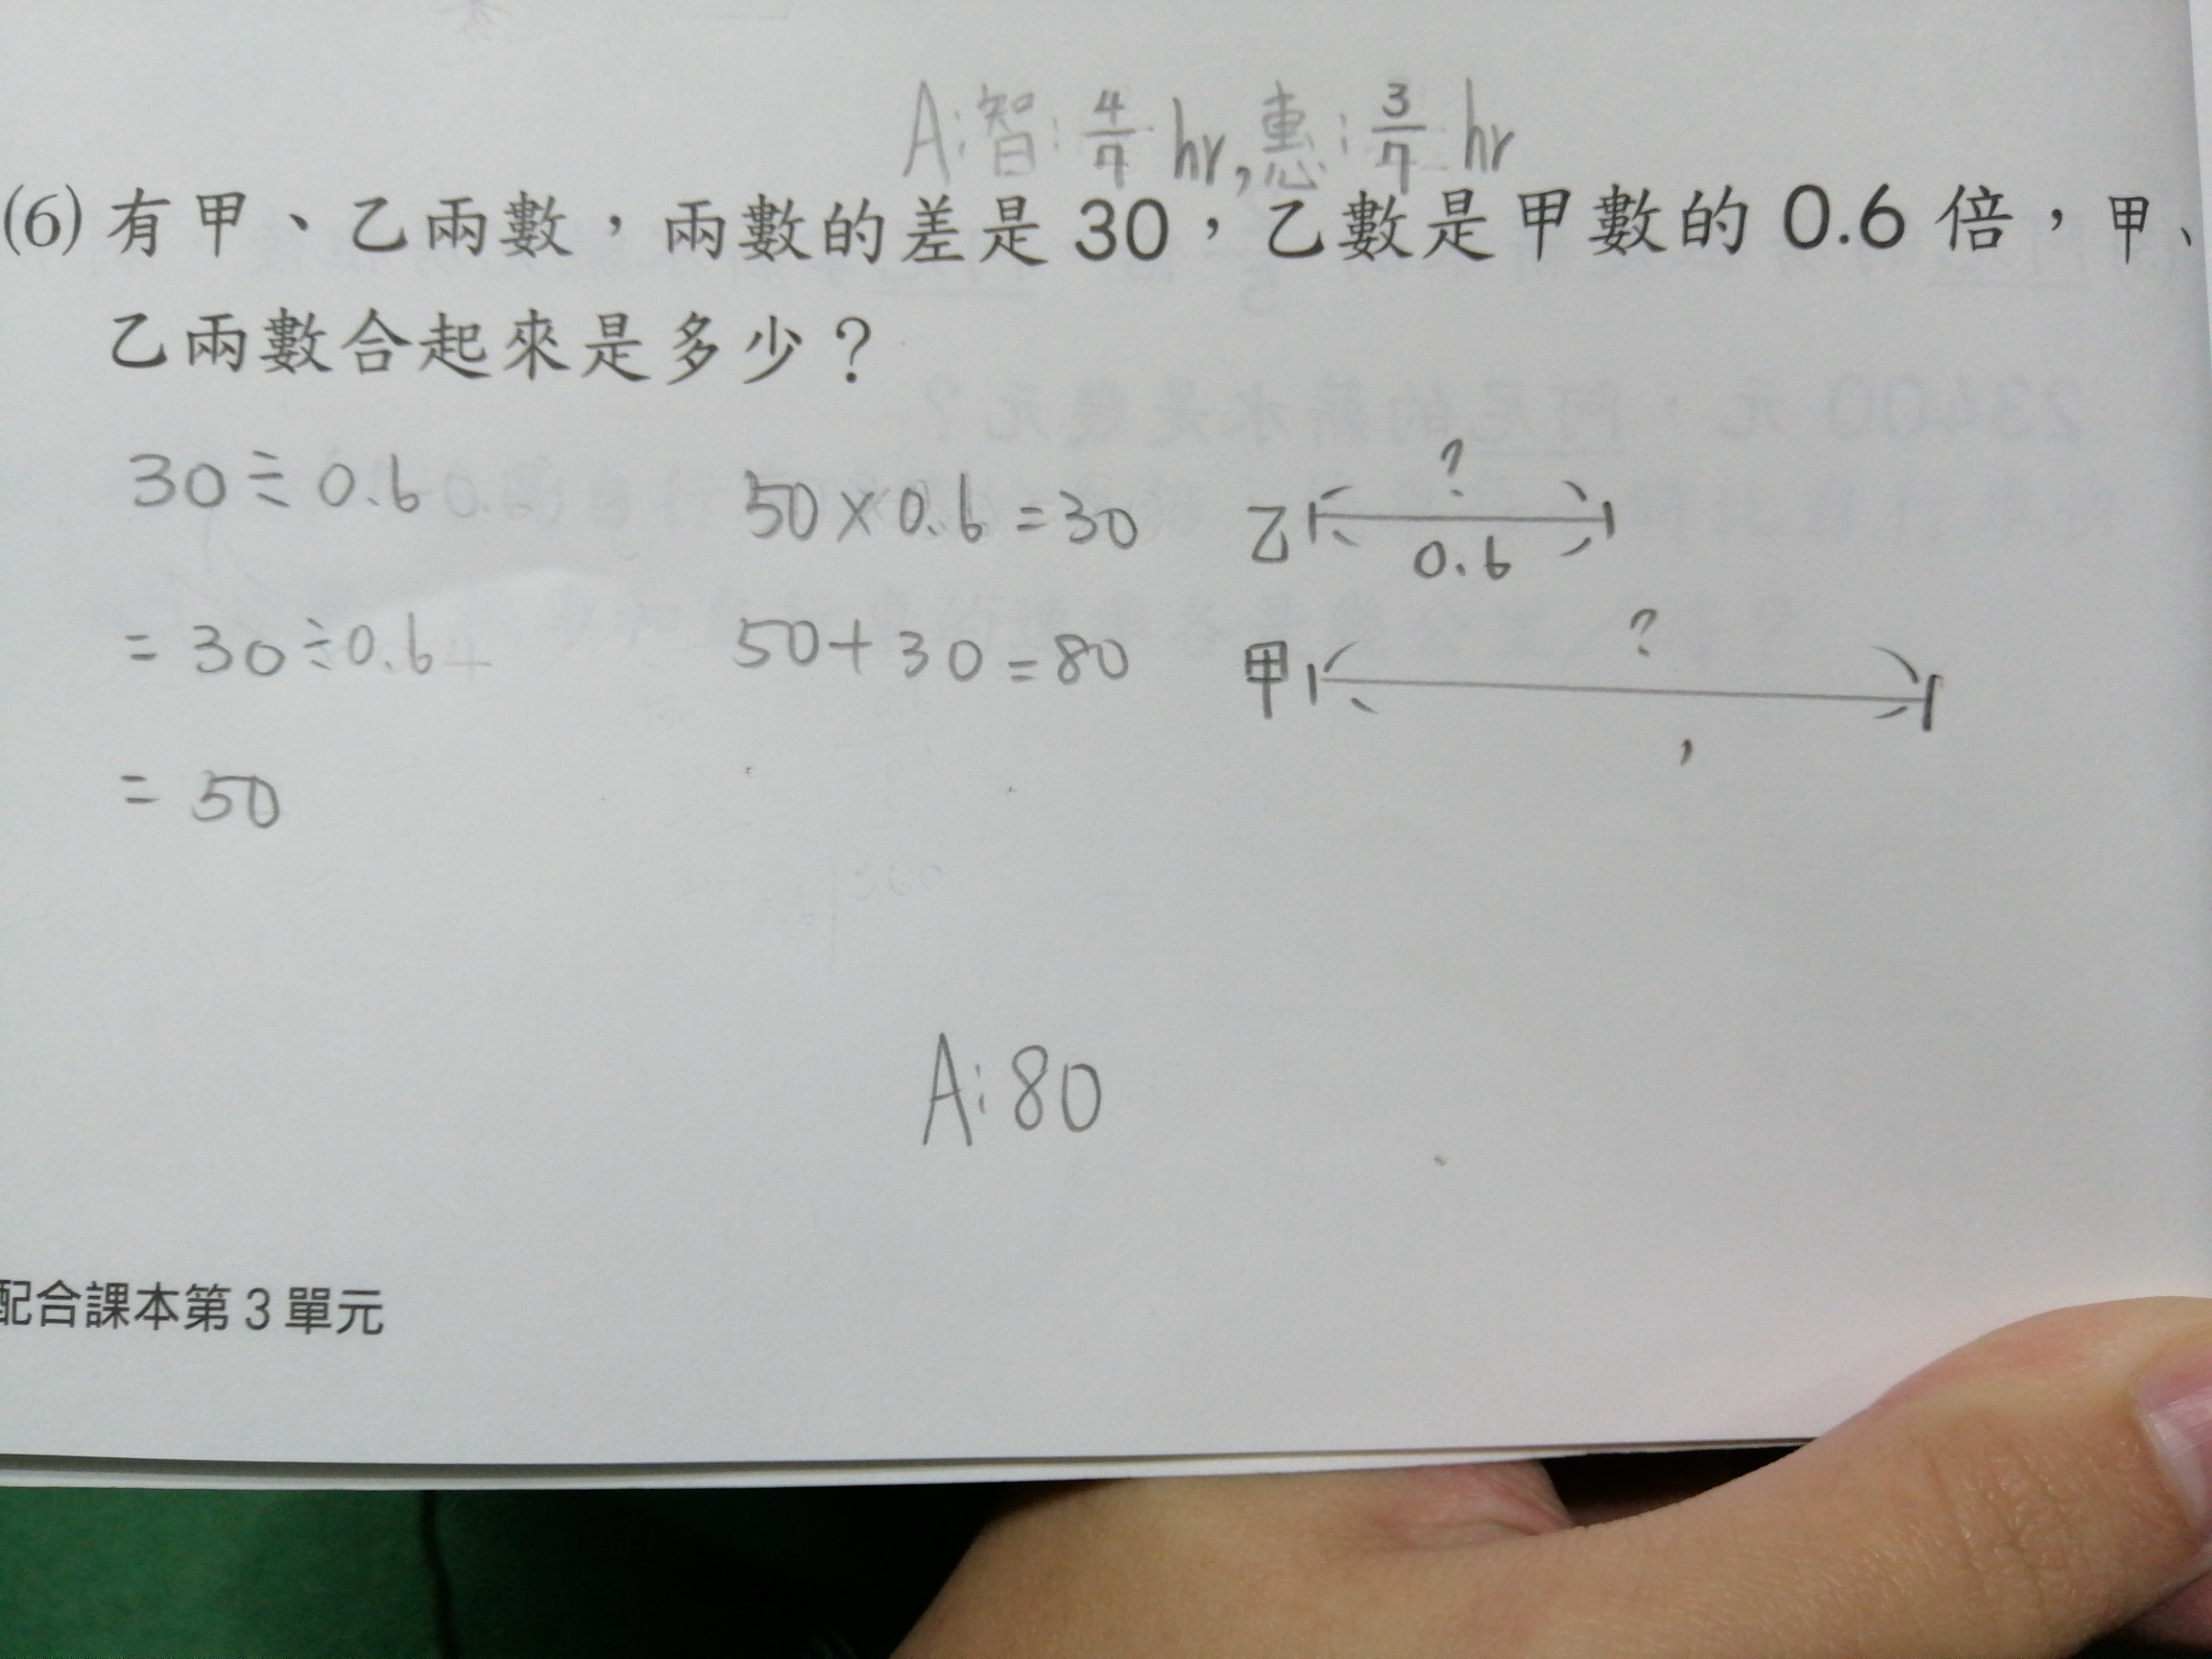 A:智:4/7 hr,惠:3/7 hr
(6)有甲、乙兩數，兩數的差是30，乙數是甲數的0.6倍，甲、
乙兩數合起來是多少？
30÷0.6
=30÷0.6
=50
50×0.6=30
50+30=80
?
乙
0.6
?
甲
A:80
配合課本第3單元